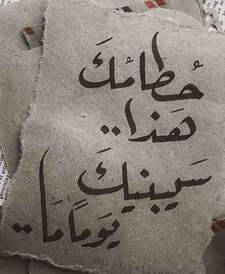 حُطامُكَ
هَذا..
سَيبنيكَ
يَوماً ما..